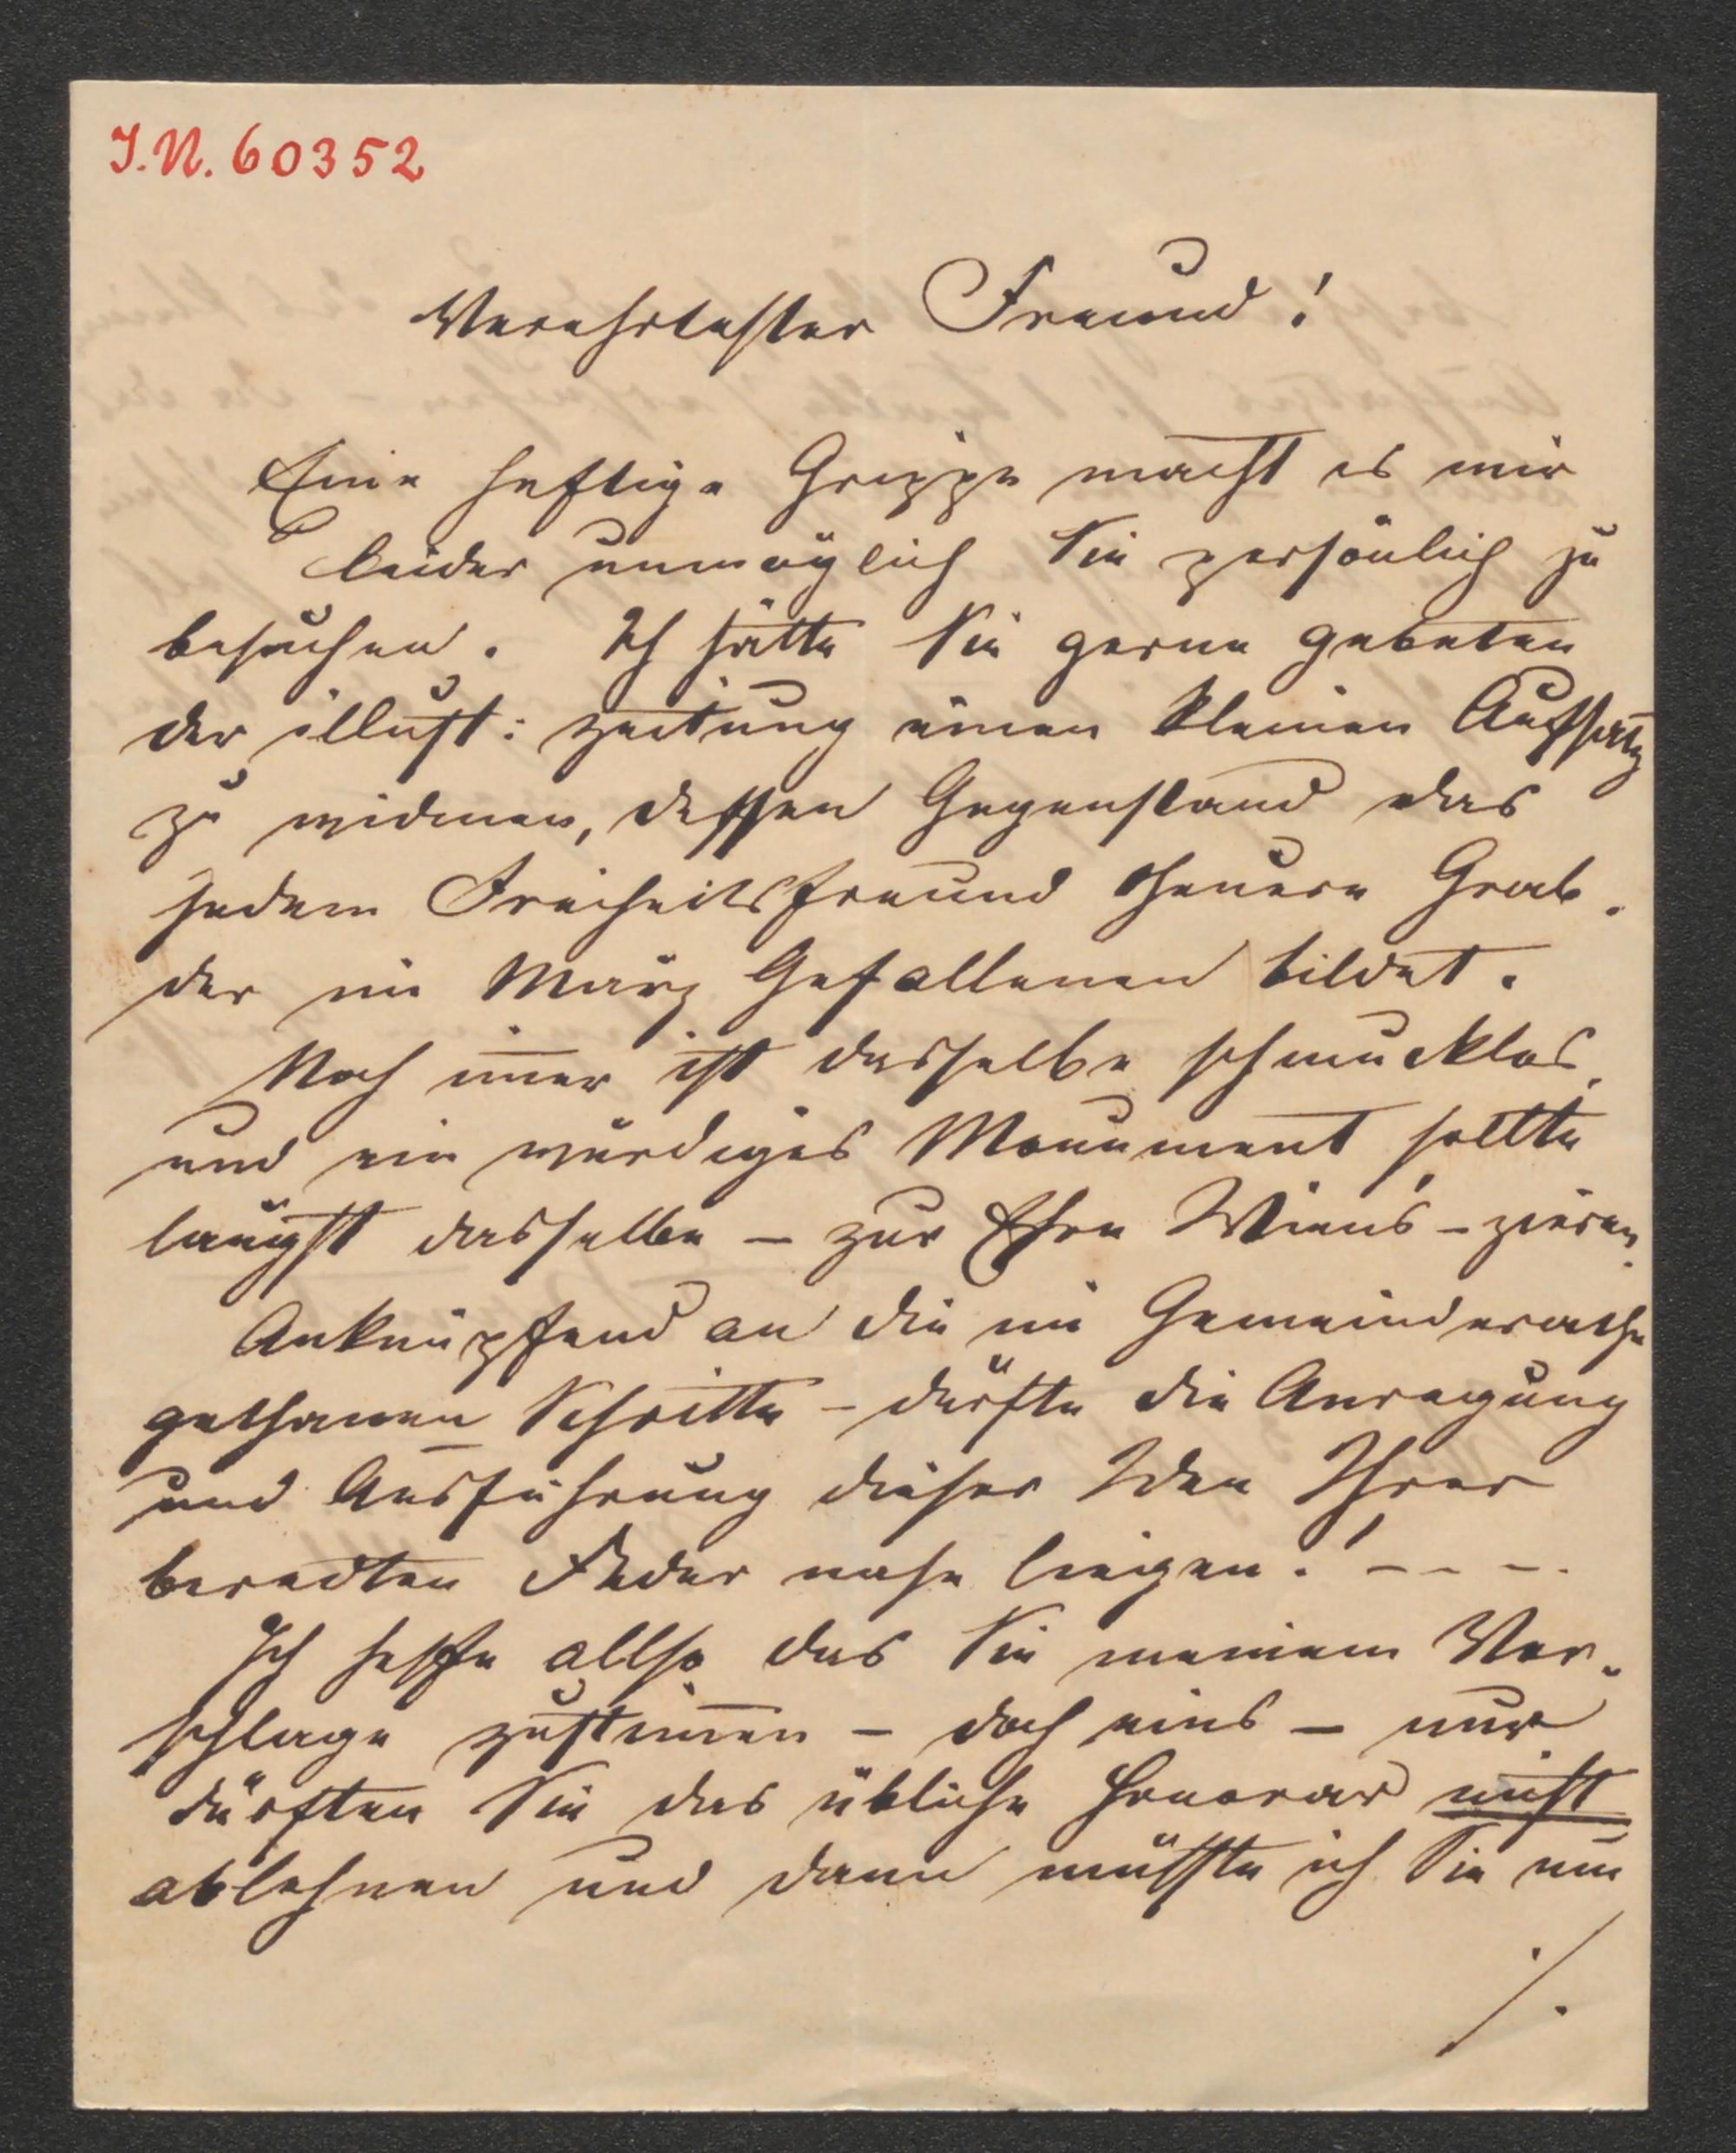 I.N. 60352
Verehrtester Freund!
Eine heftige Grippe macht es mir
leider unmöglich Sie persönlich zu
besuchen. Ich hätte Sie gerne gebeten
der illust: Zeitung einen kleinen Aufsatz
zu widmen, dessen Gegenstand das
jedem Freiheitsfreund theuere Grab
der im März Gefallenen bildet.
Noch im̅er ist dasselbe schmucklos,
und ein würdiges Monument sollte
längst dasselbe – zur Ehre Wiens – zieren.
Anknüpfend an die im Gemeinderathe
gethanen Schritte – dürfte die Anregung
und Ausführung dieser Idee Ihrer
beredten Feder nahe liegen! – – –.
Ich hoffe allso das Sie meinem Vor-
schlage zustim̅en – doch eins – nur
dürften Sie das übliche Honorar nicht
ablehnen und dann müsste ich Sie um
./.